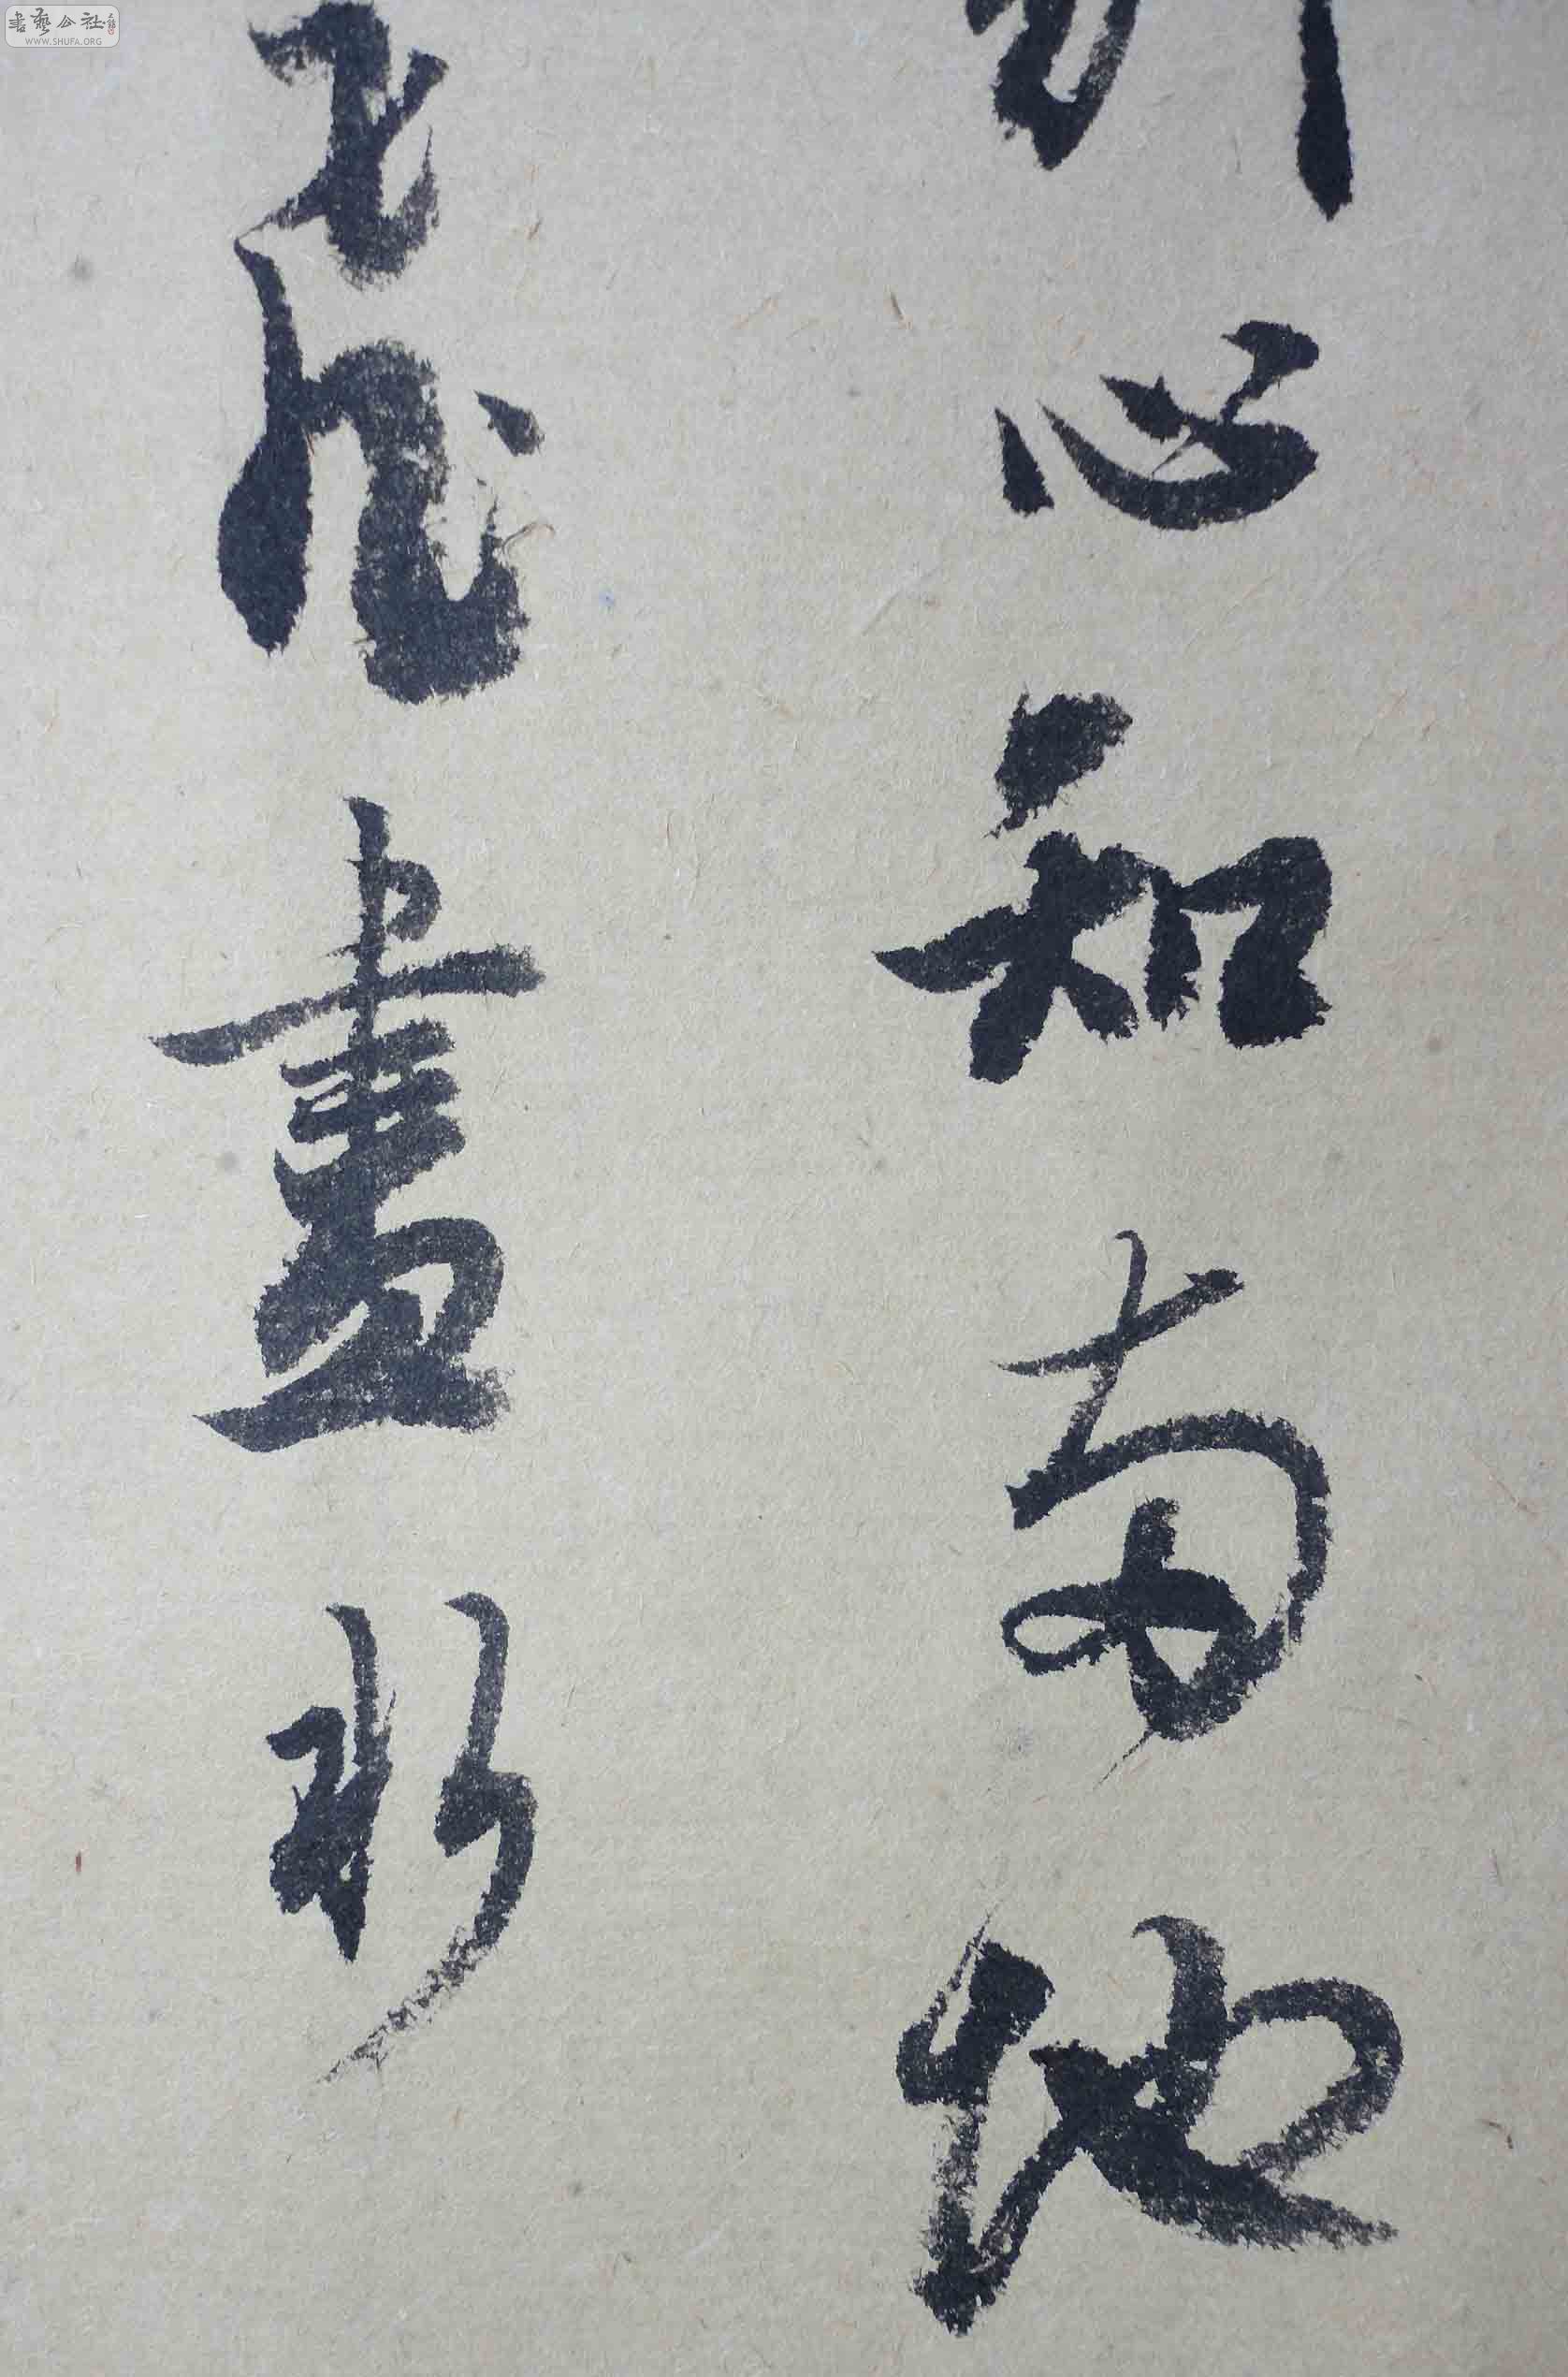 書藝公社
WWW.SHUFA.ORG
心知兩地
飛盡水